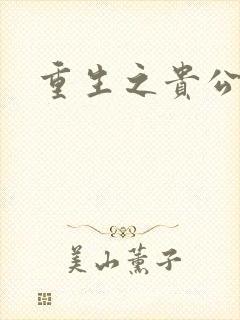 重生之貴公
美山薰子